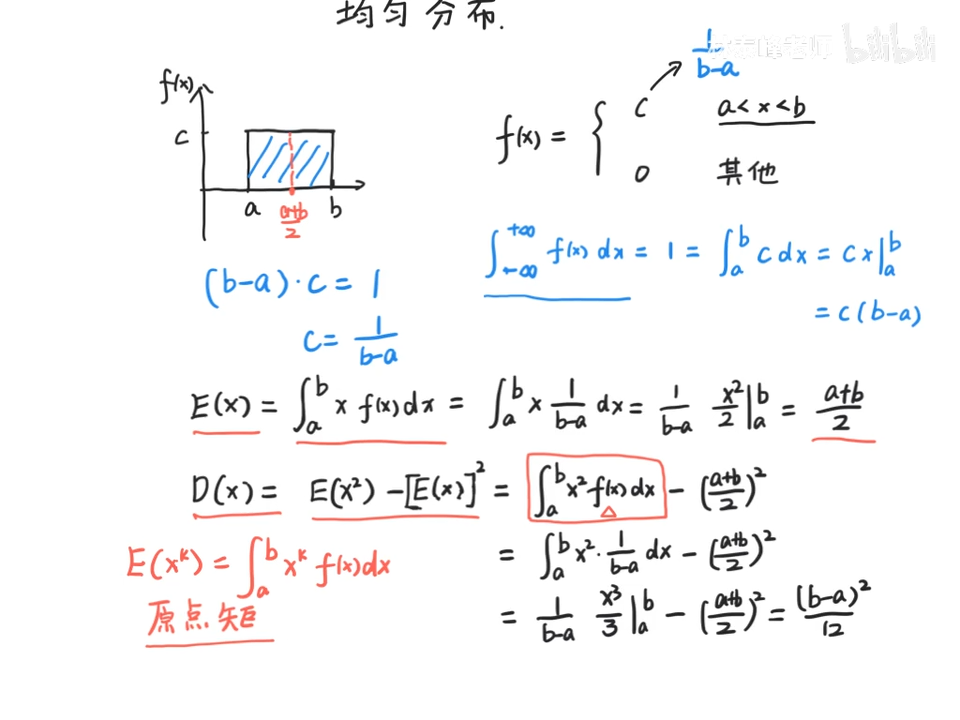 均匀分布.
bilibili
f(x)
c
a
a+b/2
b
f(x) = { c → 1/b-a a<x<b
0 其他
∫_{-∞}^{+∞} f(x) dx = 1 = ∫_a^b c dx = cx|_a^b
= c(b-a)
(b-a)·c = 1
c = 1/b-a
E(x) = ∫_a^b x f(x) dx = ∫_a^b x 1/b-a dx = 1/b-a x²/2|_a^b = a+b/2
D(x) = E(x²) - [E(x)]² = ∫_a^b x² f(x) dx - (a+b/2)²
= ∫_a^b x²·1/b-a dx - (a+b/2)²
= 1/b-a x³/3|_a^b - (a+b/2)² = (b-a)²/12
E(x^k) = ∫_a^b x^k f(x) dx
原点矩